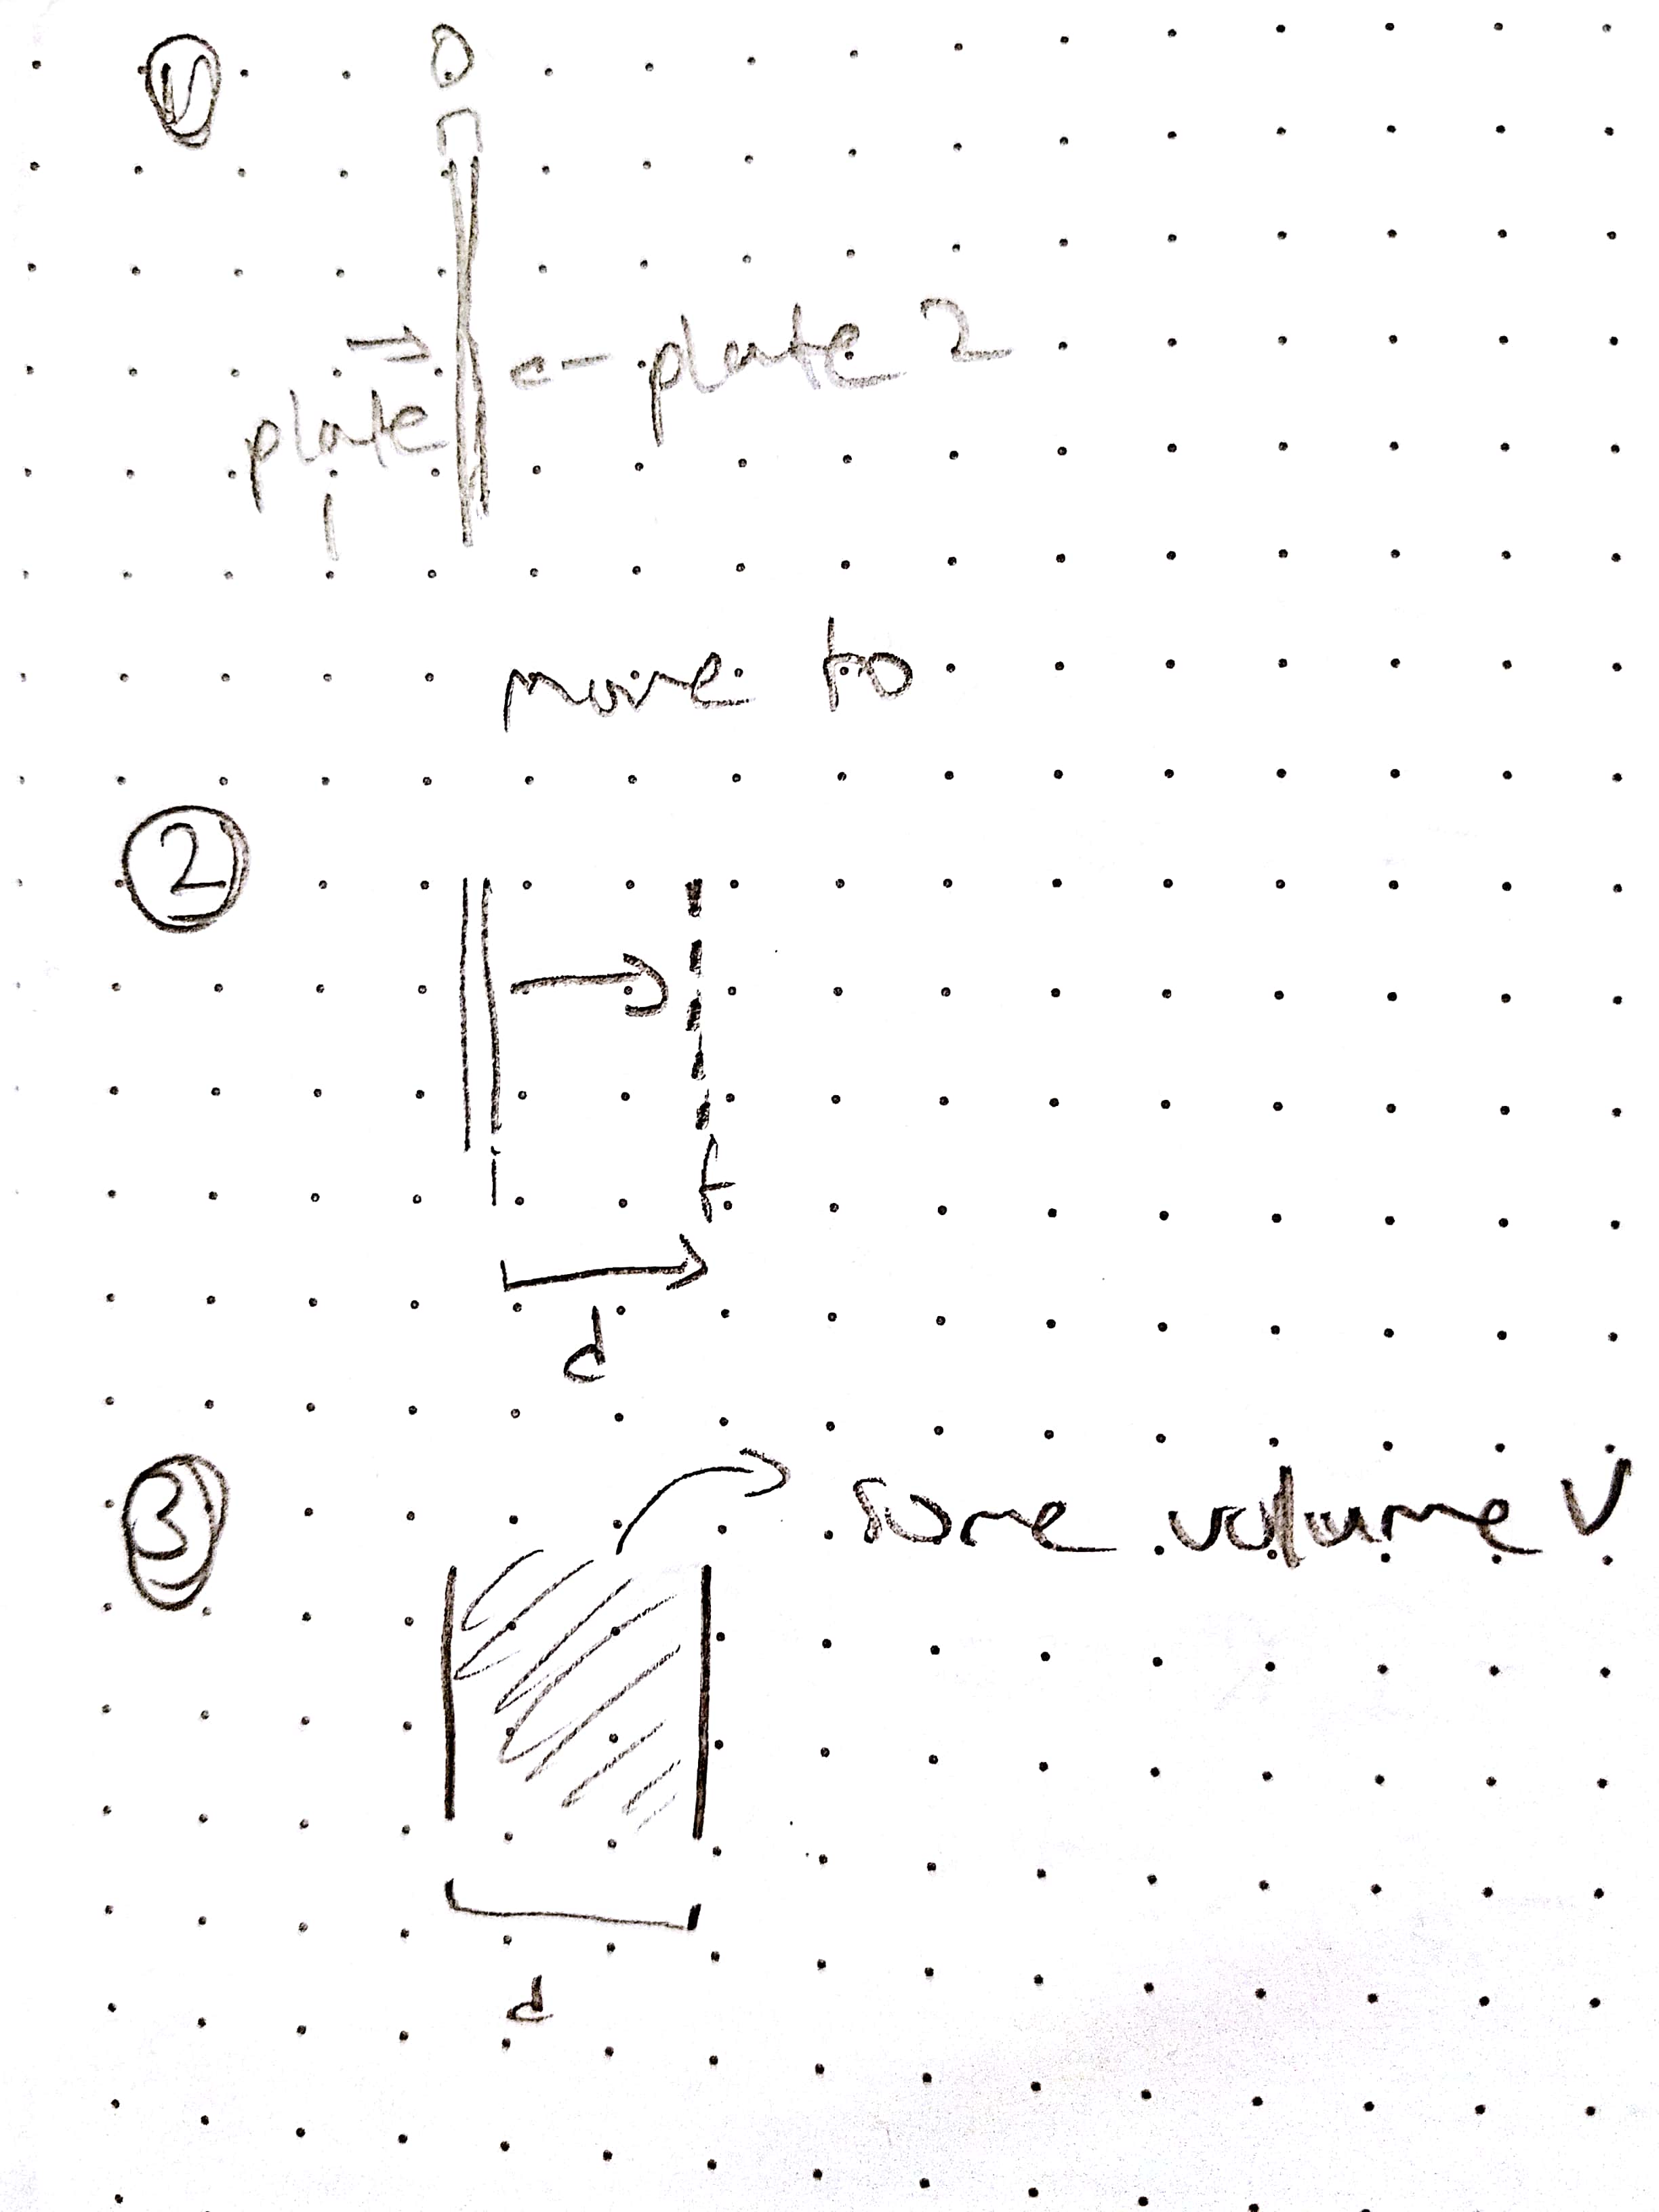 1
0
plate 2
plate
1
move to
2
i f
d
3
some volume V
d